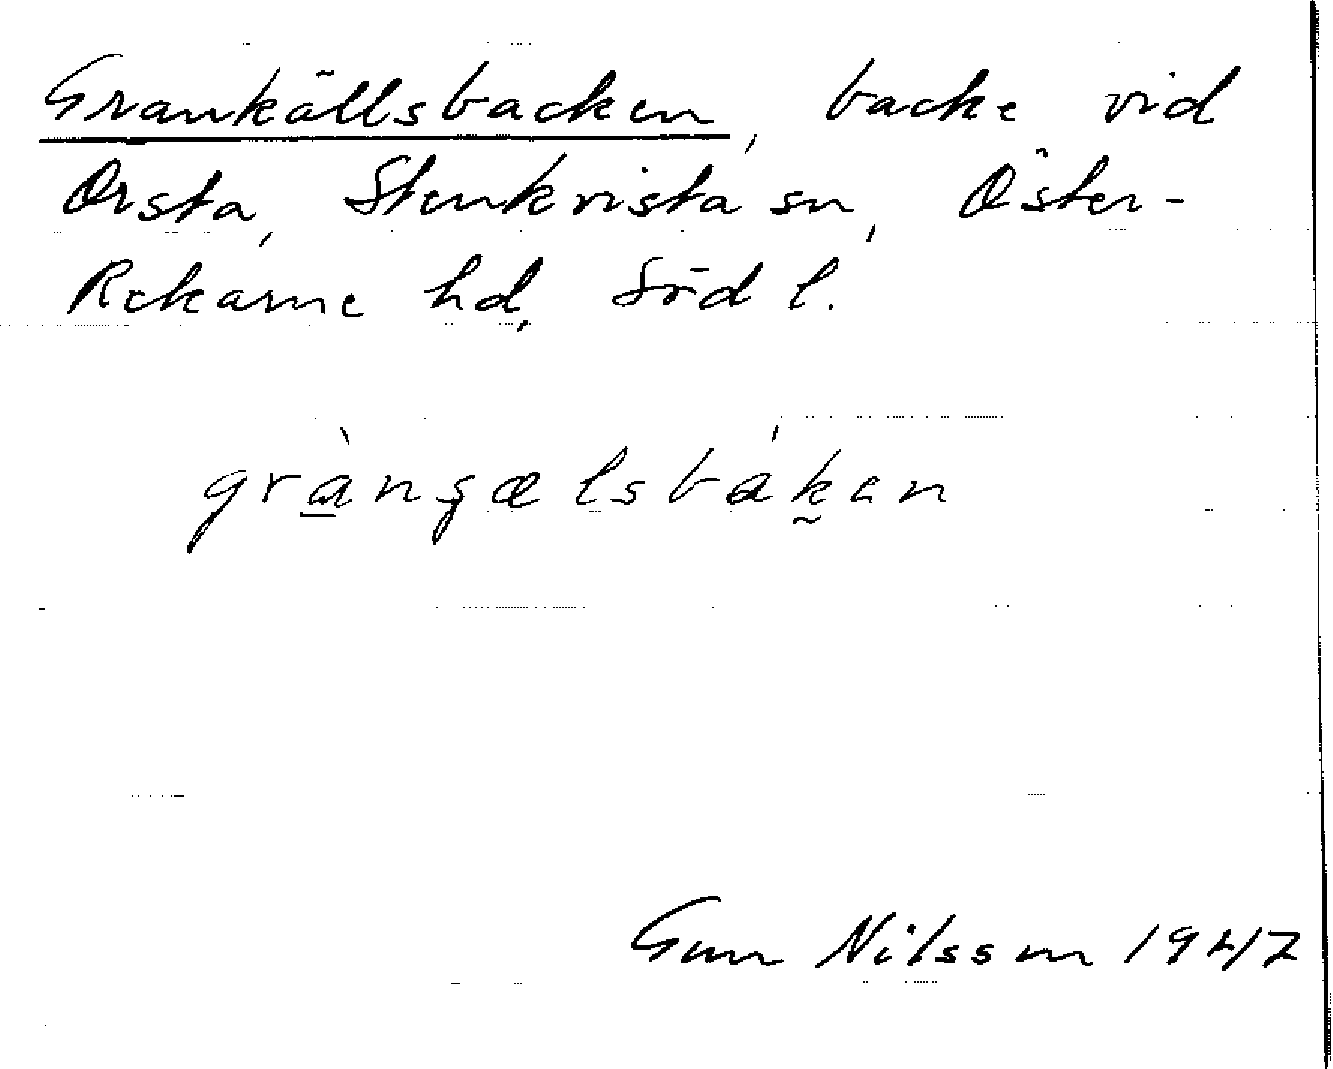 Grankällsbacken, backe vid
Orsta, Stenkvista sn, Öster-
Rekarne hd, Söd l.
gràngælsbáken
Gun Nilsson 1947